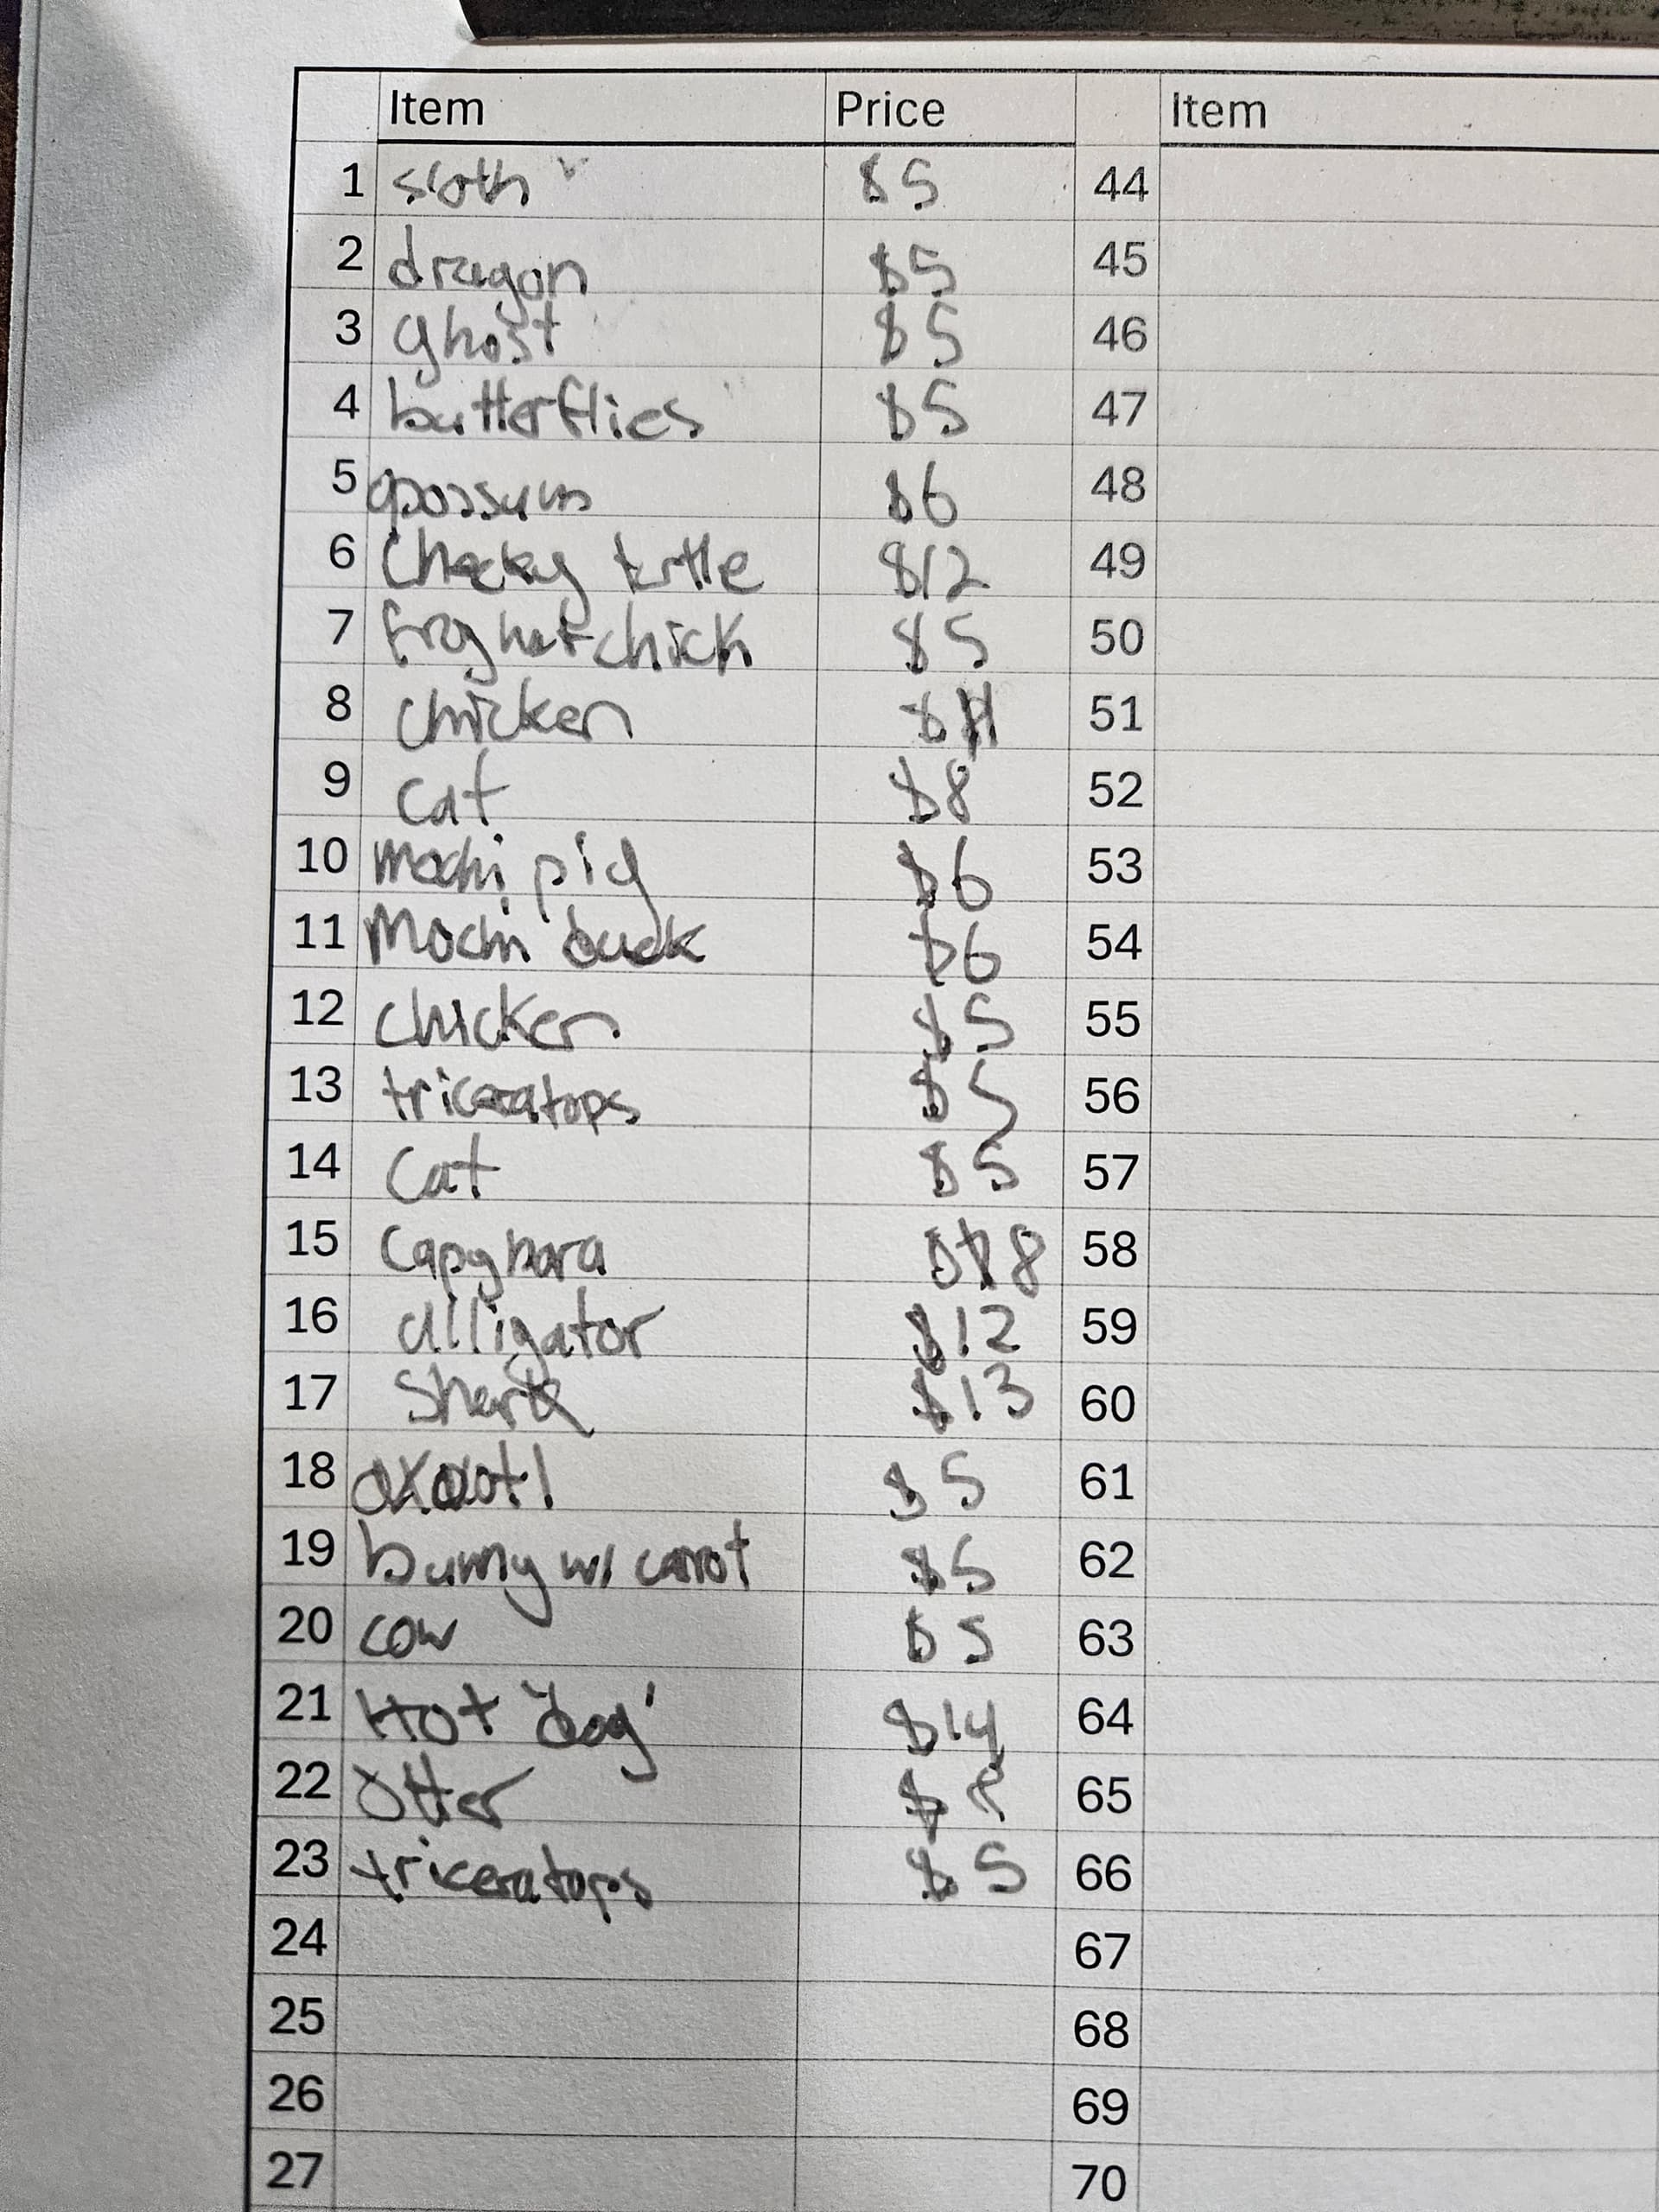 Item Price Item
1 sloth $5 44
2 dragon $5 45
3 ghost $5 46
4 butterflies $5 47
5 opossum $6 48
6 turtle $12 49
7 frog hat chick $5 50
8 chicken 51
9 cat $8 52
10 mochi pig $6 53
11 Mochi duck $6 54
12 chicken $5 55
13 triceratops $5 56
14 cat $5 57
15 capybara 58
16 alligator $12 59
17 Shark $13 60
18 axolotl $5 61
19 bunny w/ carrot $5 62
20 cow $5 63
21 Hot "dog" $14 64
22 Otter 65
23 triceratops $5 66
24 67
25 68
26 69
27 70